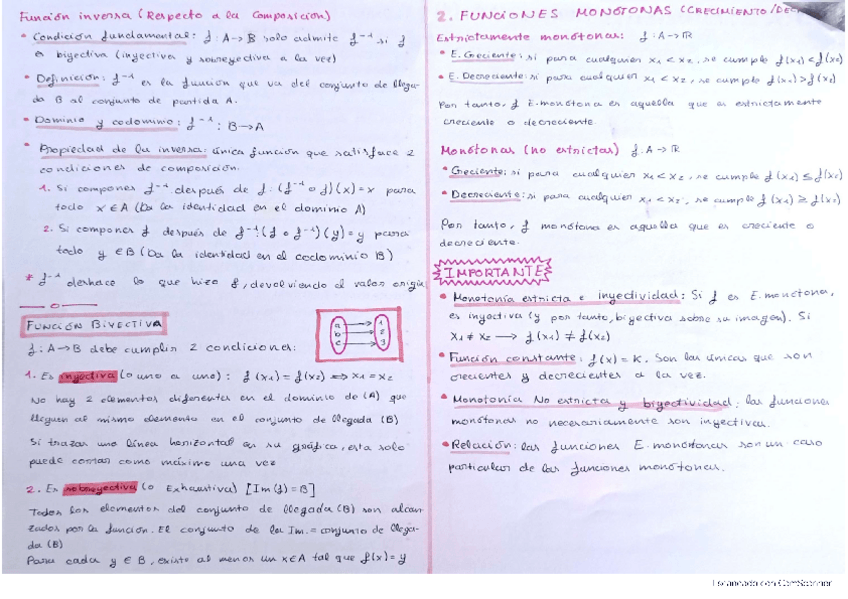 Función inversa (Respecto a la Composición)
• Condición fundamental: f: A→B solo admite f⁻¹ si f
es biyectiva (inyectiva y sobreyectiva a la vez)
• Definición: f⁻¹ es la función que va del conjunto de llega-
da B al conjunto de partida A.
• Dominio y codominio: f⁻¹: B→A
• Propiedad de la inversa: única función que satisface 2
condiciones de composición.
1. Si compones f⁻¹ después de f: (f⁻¹ o f)(x)=x para
todo x∈A (Da la identidad en el dominio A)
2. Si compones f después de f⁻¹: (f o f⁻¹)(y)=y para
todo y∈B (Da la identidad en el codominio B)
* f⁻¹ deshace lo que hizo f, devolviendo al valor origin
FUNCIÓN BIYECTIVA
f: A→B debe cumplir 2 condiciones:
a 1
b 2
c 3
1. Es inyectiva (o uno a uno): f(x1)=f(x2) ⟹ x1=x2
No hay 2 elementos diferentes en el dominio de (A) que
lleguen al mismo elemento en el conjunto de llegada (B)
Si trazas una línea horizontal en su gráfica, esta solo
puede cortar como máximo una vez
2. Es sobreyectiva (o Exhaustiva) [Im(f)=B]
Todos los elementos del conjunto de llegada (B) son alcan-
zados por la función. El conjunto de la Im. = conjunto de llega-
da (B)
Para cada y∈B, existe al menos un x∈A tal que f(x)=y
2. FUNCIONES MONÓTONAS (CRECIMIENTO/DEC
Estrictamente monótonas: f: A→ℝ
• E. Creciente: si para cualquier x1<x2, se cumple f(x1)<f(x2)
• E. Decreciente: si para cualquier x1<x2, se cumple f(x1)>f(x2)
Por tanto, f E. monótona es aquella que es estrictamente
creciente o decreciente.
Monótonas (no estrictas) f: A→ℝ
• Creciente: si para cualquier x1<x2, se cumple f(x1)≤f(x2)
• Decreciente: si para cualquier x1<x2, se cumple f(x1)≥f(x2)
Por tanto, f monótona es aquella que es creciente o
decreciente.
IMPORTANTE
• Monotonía estricta e inyectividad: Si f es E. monótona,
es inyectiva (y por tanto, biyectiva sobre su imagen). Si
x1≠x2 → f(x1)≠f(x2)
• Función constante: f(x)=K. Son las únicas que son
crecientes y decrecientes a la vez.
• Monotonía No estricta y biyectividad: las funciones
monótonas no necesariamente son inyectivas.
• Relación: las funciones E. monótonas son un caso
particular de las funciones monótonas.
Escaneado con CamScanner